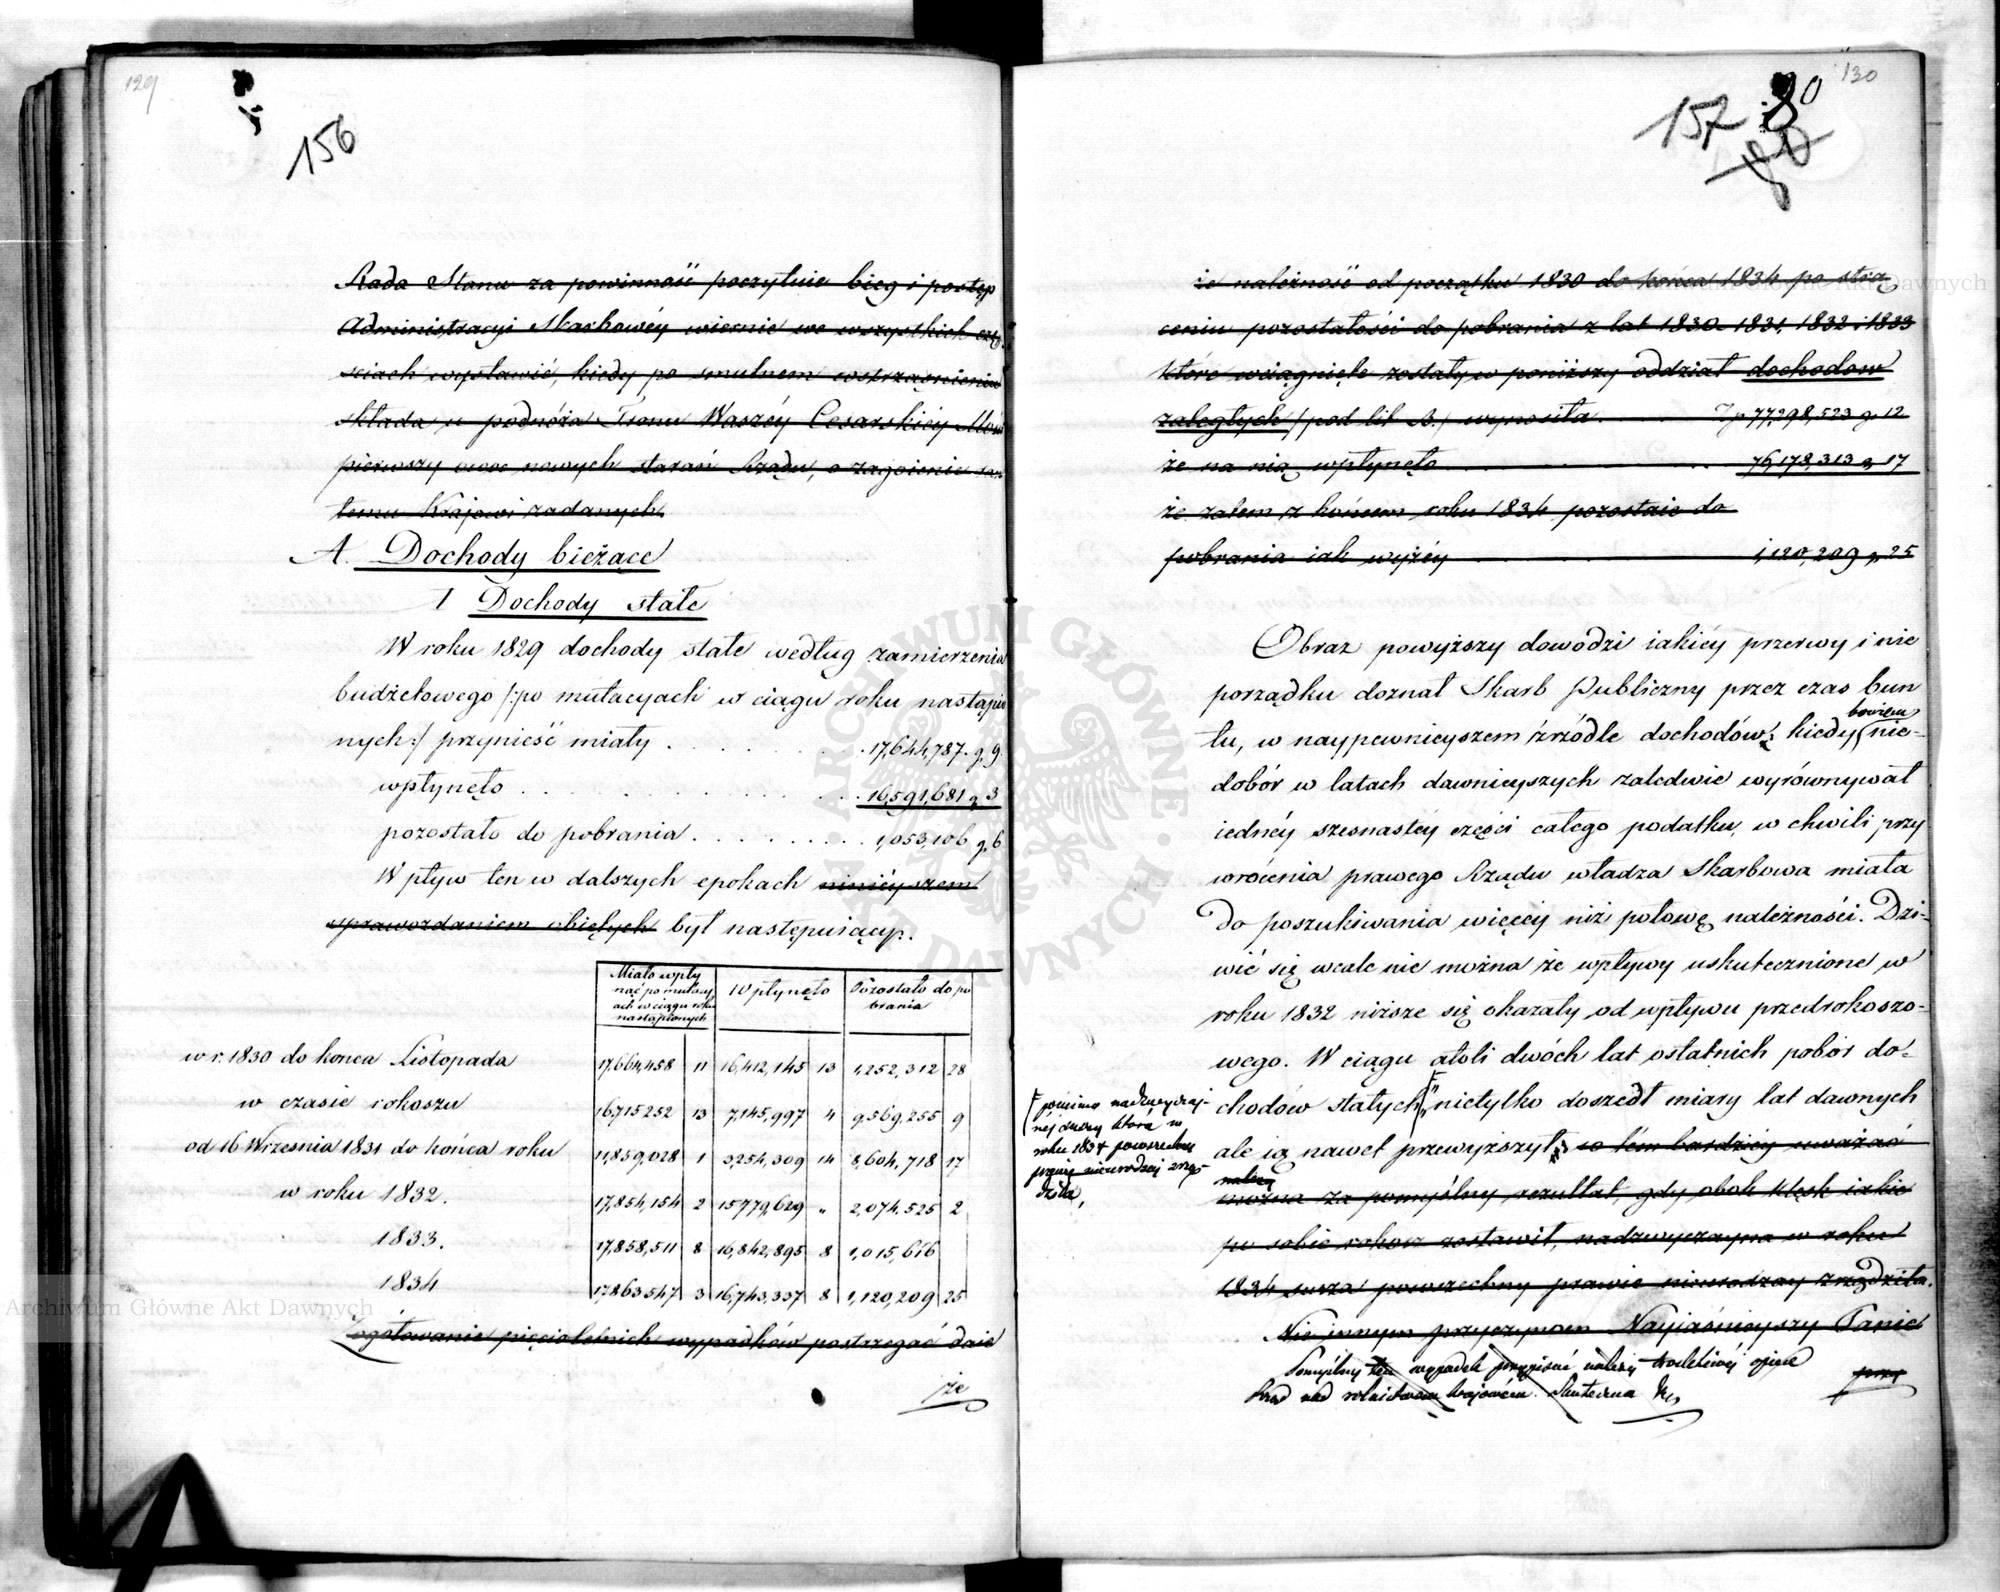 129
156
Rada Stanu za powinność poczytuie bieg i postęp
Administracyi Skarbowéy wiernie we wszystkich czę
ściach wystawić, kiedy po smutnem wstrząśnieniu
składa u podnóża Tronu Waszéy Cesarskiéy Mości
pierwszy owoc nowych starań Rządu, o zagoienie
temu Krajowi zadanych
A. Dochody bieżące
I Dochody stałe
W roku 1829 dochody stałe według zamierzenia
budżetowego /:po mutacyach w ciągu roku nastąpio
nych:/ przynieść miały . . . . . . 17,644,787. g. 9.
wpłynęło . . . . . . . . . 16,591,681 g. 3
pozostało do pobrania . . . . . . . . 1,053,106 g. 6
Wpływ ten w dalszych epokach ninieyszem
sprawozdaniem obiętych był następuiący.
Miało wpły
nąć po mutacy
ach w ciągu roku
nastąpionych
Wpłynęło
Pozostało do po
brania
w r. 1830 do końca Listopada 17,664,458 11 16,412,145 13 1,252,312 28
w czasie rokoszu 16,715252 13 7,145,997 4 9,569,255 9
od 16 Września 1831 do końca roku 11,859,028 1 3,254,309 14 8,604,718 17
w roku 1832. 17,854,154 2 15779,629 „ 2,074,525 2
1833. 17,858,511 8 16,842,895 8 1,015,616
1834 17,863547 3 16,743,337 8 1,120,209 25
Zogółowanie pięcioletnich wypadków postrzegać daie
że
130
157 80
że należność od początku 1830 do końca 1834 po strą
ceniu pozostałości do pobrania z lat 1830. 1831. 1832 i 1833
które wciągnięte zostały w poniższy oddział dochodow
zaległych /pod lit B./ wynosiła . . . Zp 77,298,523 g. 12
że na nią wpłynęło . . . . 76,178,313 g. 17
że zatem z końcem roku 1834 pozostaie do
pobrania iak wyżéy 1,120,209 g. 25
Obraz powyższy dowodzi iakiéy przerwy i nie
porządku doznał Skarb Publiczny przez czas bun
bowiem
tu, w naypewnieyszem źrźódle dochodów; kiedy nie-
dobór w latach dawnieyszych zaledwie wyrównywał
iednéy szesnastéy części całego podatku, w chwili przy
wrócenia prawego Rządu władza Skarbowa miała
do poszukiwania więcéy niż połowę należności. Dzi-
wić się wcale nie można że wpływy uskutecznione w
roku 1832 niższe się okazały od wpływu przedrokoszo-
wego. W ciągu atoli dwóch lat ostatnich pobór do-
chodów stałych nietylko doszedł miary lat dawnych
(pomimo nadzwyczaj-
nej suszy która w
roku 1834 powszechny
prawie nieurodzaj zrzą-
dziła,
ale ią nawet przewyższył, co tém bardziéy uważać
należy
można za pomyślny rezultat, gdy obok klęsk iakie
po sobie rokosz zostawił, nadzwyczayna w roku
1834 susza powszechny prawie nieurodzay zrządziła.
Nie innym przyczynom Nayiaśnieyszy Panie
Pomyślny ten wypadek przypisać należy troskliwéj opiece
Rząd nad rolnictwem krajowém. Skuteczna
przy
Archiwum Główne Akt Dawnych
ARCHIWUM GŁÓWNE AKT DAWNYCH